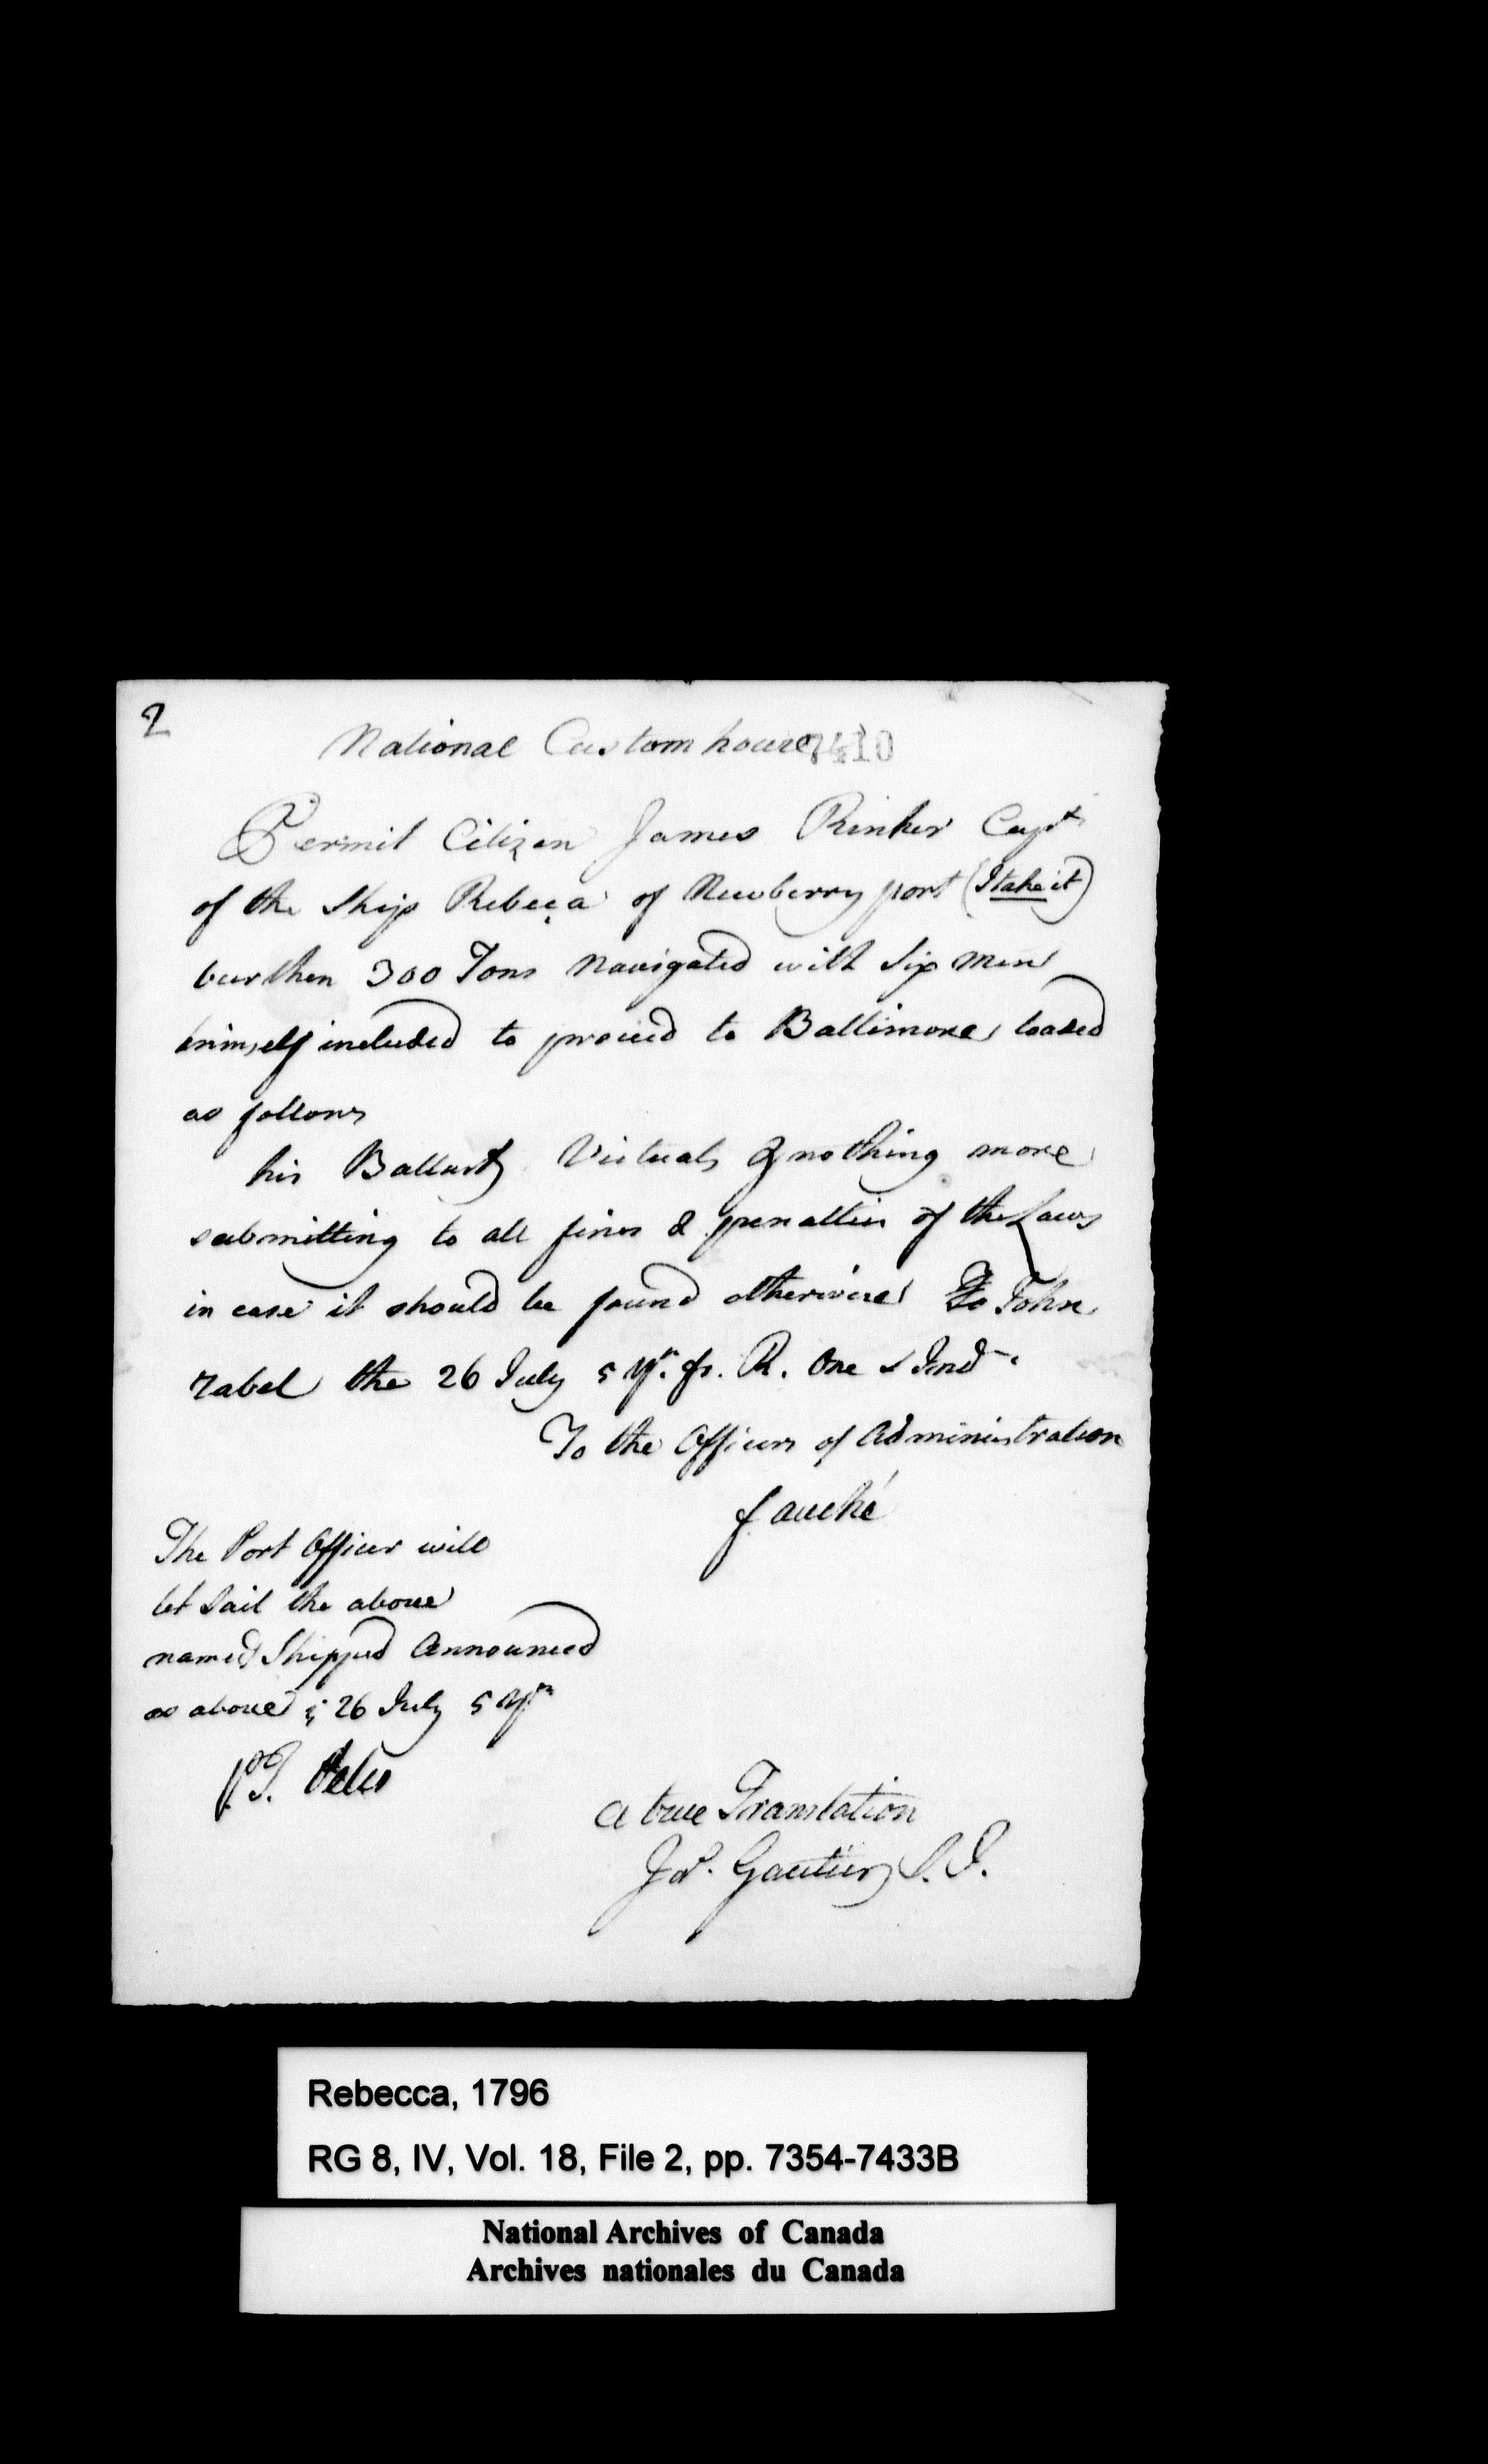 2
National Custom house 7410
Permit Citizen James Rinker Capt
of the Ship Rebeça of Newberry port (I take it)
burthen 300 Tons Navigated with Six Men
himself included to proceed to Baltimore loaded
as follows
his Ballast Victuals & nothing more
submitting to all fines & penalties of the Laws
in case it should be found otherwise To John
rabel the 26 July 5 yr. fr. R. One & Ind
To the Officers of Administration
fauché
The Port Officer will
let Sail the above
named Shipped Announced
as above 26 July 5 yr
a true Translation
Jos. Gautier S. I.
Rebecca, 1796
RG 8, IV, Vol. 18, File 2, pp. 7354-7433B
National Archives of Canada
Archives nationales du Canada